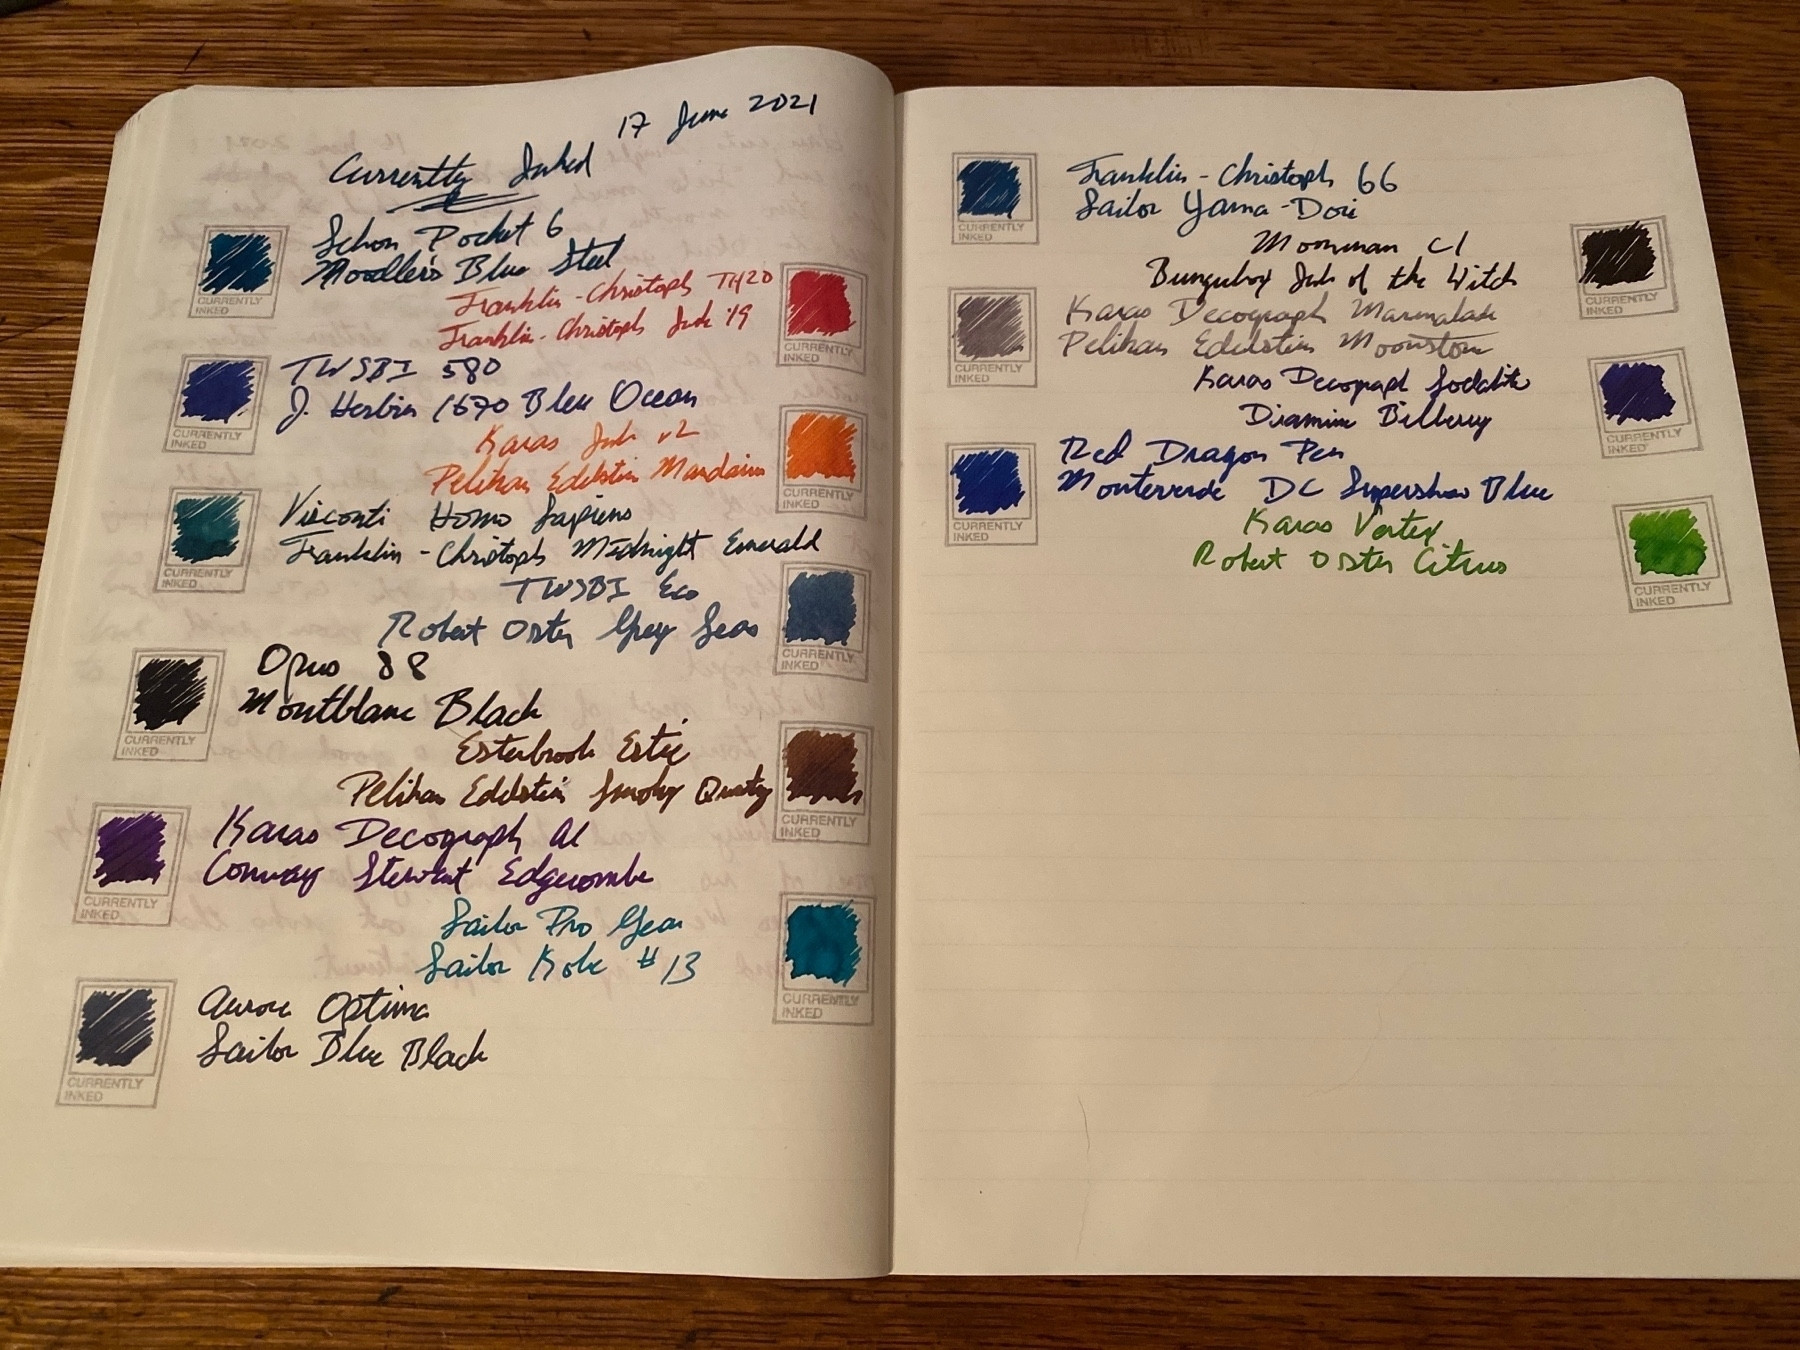 17 June 2021
Currently Inked
Schon Pocket 6
Noodler's Blue Steel
CURRENTLY
INKED
Franklin-Christoph TH20
Franklin-Christoph Ink '19
CURRENTLY
INKED
TWSBI 580
J. Herbin 1670 Bleu Ocean
CURRENTLY
INKED
Karas Ink v2
Pelikan Edelstein Mandarin
CURRENTLY
INKED
Visconti Homo Sapiens
Franklin-Christoph Midnight Emerald
CURRENTLY
INKED
TWSBI Eco
Robert Oster Grey Seas
CURRENTLY
INKED
Opus 88
Montblanc Black
CURRENTLY
INKED
Esterbrook Estie
Pelikan Edelstein Smoky Quartz
CURRENTLY
INKED
Karas Decograph Al
Conway Stewart Edgecombe
CURRENTLY
INKED
Sailor Pro Gear
Sailor Kobe #13
CURRENTLY
INKED
Aurora Optima
Sailor Blue Black
CURRENTLY
INKED
Franklin-Christoph 66
Sailor Yama-Dori
CURRENTLY
INKED
Moonman C1
Bungubox Ink of the Witch
CURRENTLY
INKED
Karas Decograph Marmalade
Pelikan Edelstein Moonstone
CURRENTLY
INKED
Karas Decograph Sodalite
Diamine Bilberry
CURRENTLY
INKED
Red Dragon Pen
Monteverde DC Supershow Blue
CURRENTLY
INKED
Karas Vertex
Robert Oster Citrus
CURRENTLY
INKED